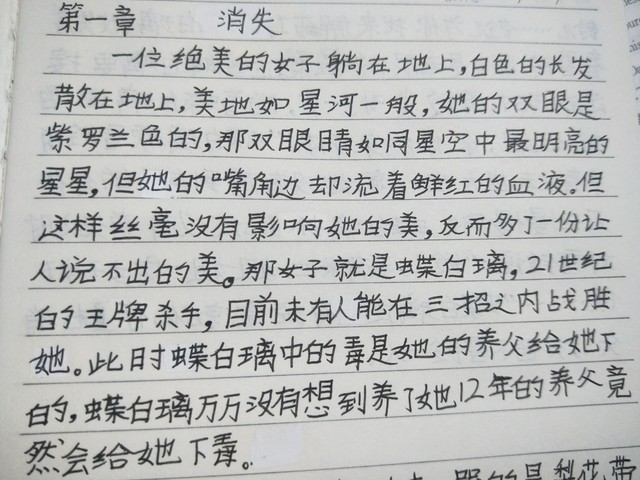 第一章 消失
一位绝美的女子躺在地上,白色的长发
散在地上,美地如星河一般,她的双眼是
紫罗兰色的,那双眼睛如同星空中最明亮的
星星,但她的嘴角边却流着鲜红的血液.但
这样丝毫没有影响她的美,反而多了一份让
人说不出的美。那女子就是蝶白璃,21世纪
的王牌杀手,目前未有人能在三招之内战胜
她。此时蝶白璃中的毒是她的养父给她下
的,蝶白璃万万没有想到养了她12年的养父竟
然会给她下毒。
的是梨花带